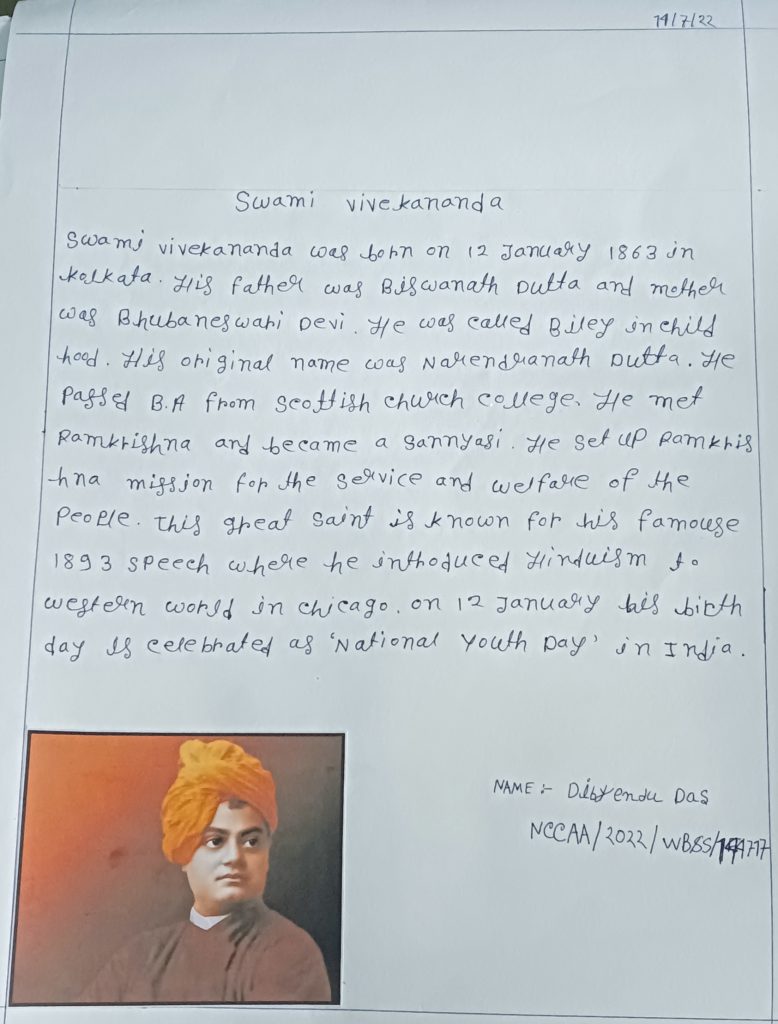 14/7/22
Swami vivekananda
Swami vivekananda was born on 12 January 1863 in
kolkata. His father was Biswanath Dutta and mother
was Bhubaneswari Devi. He was called Biley in child
hood. His original name was Narendranath Dutta. He
passed B.A from scottish church college. He met
Ramkrishna and became a sannyasi. He set up Ramkris
hna mission for the service and welfare of the
people. This great saint is known for his famouse
1893 speech where he introduced Hinduism to
western world in chicago. on 12 January his birth
day is celebrated as 'National Youth Day' in India.
NAME :- Dibyendu Das
NCCAA/2022/WBSS/